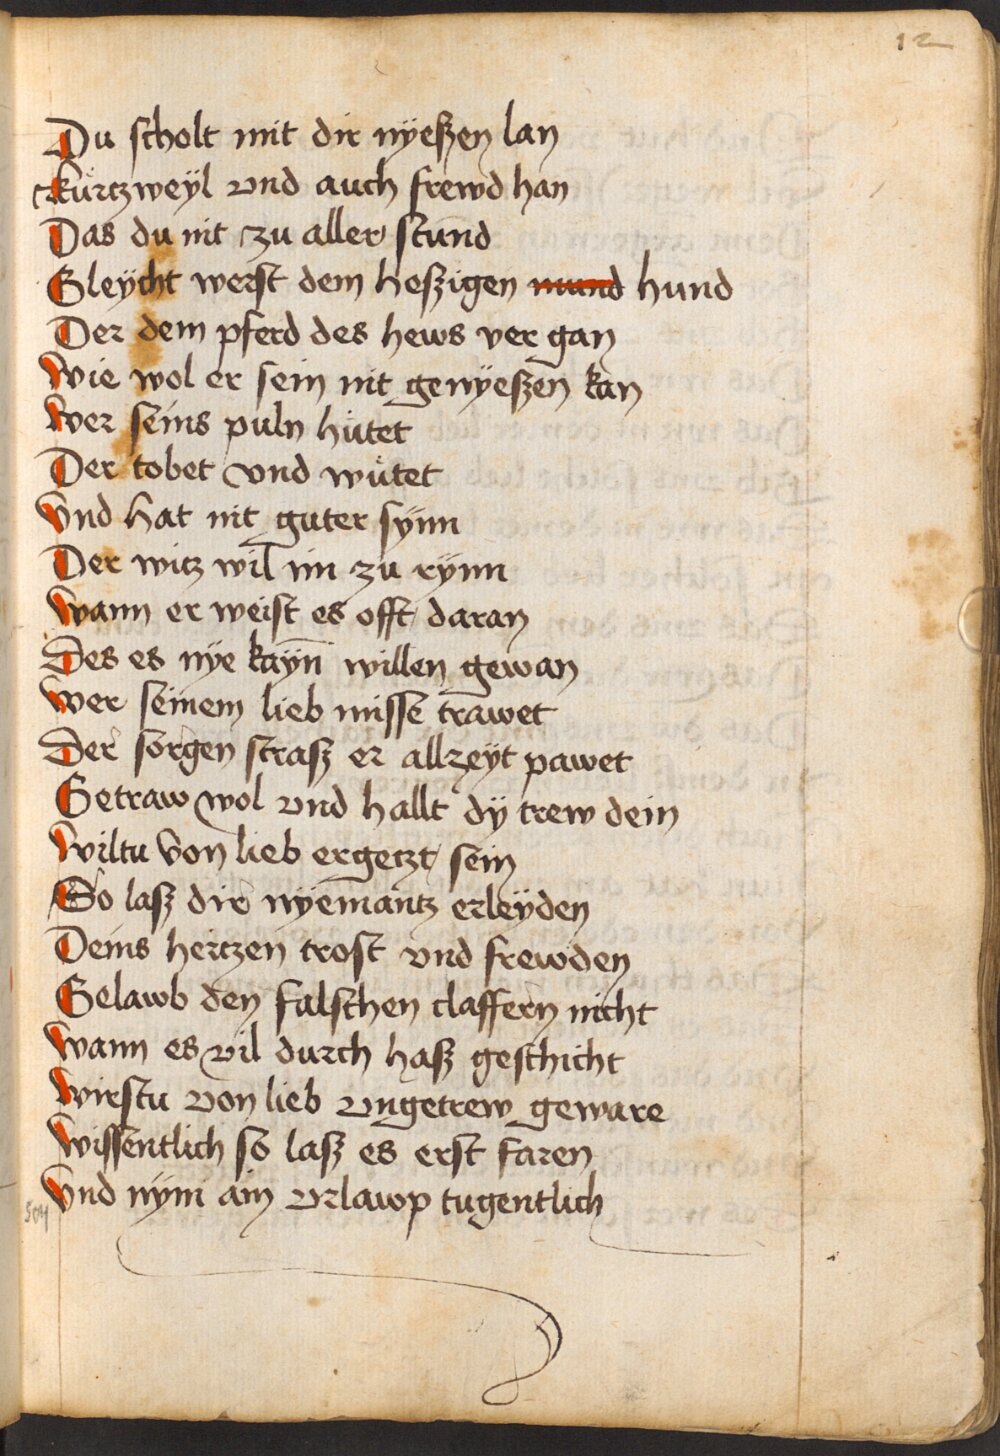 12
Du scholt mit dir nÿeßen lan
Kürtzweÿl vnd auch frewd han
Das du nit zu aller stund
Gleÿcht werst dem heßigen mund hund
Der dem pferd des hews ver gan
Wie wol er sein nit genÿeßen kan
Wer seins puln hütet
Der tobet vnd wütet
Vnd hat nit guter sÿnn
Der witz wil im zu rÿnn
Wann er weist es offt daran
Des es nÿe kaÿn willen gewan
Wer seinem lieb misse trawet
Der sorgen straß er allzeÿt pawet
Getraw wol vnd hallt dÿ trew dein
Wiltu von lieb ergetzt sein
So laß dir nÿemantz erleÿden
Deins hertzen trost vnd frewden
Gelawb den falschen claffern nicht
Wann es vil durch haß geschicht
Wirstu von lieb vngetrew geware
Wissentlich so laß es erst faren
Vnd nÿm ain vrlawp tugentlich
504